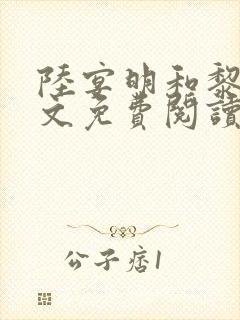 陸宴明和黎
文免費閱讀
公子痞1